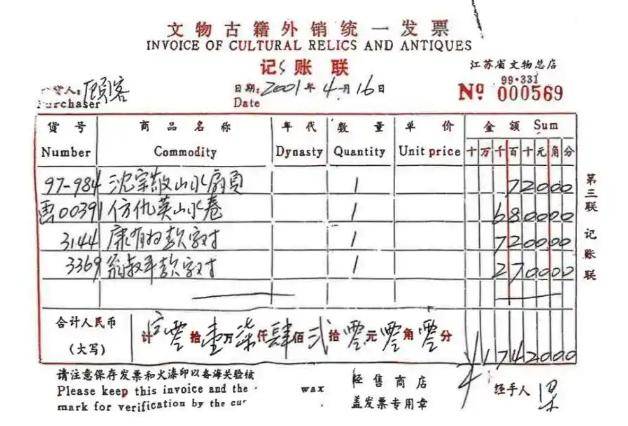 文物古籍外销统一发票
INVOICE OF CULTURAL RELICS AND ANTIQUES
记账联
江苏省文物总店
99·331
№ 000569
货人: 顾客
Purchaser
日期: 2001年4月16日
Date
货号 商品名称 年代 数量 单价 金额 Sum
Number Commodity Dynasty Quantity Unit price 十万千百十元角分
97-984 沈宗敬山水扇页 1 72000
画00391 仿仇英山水卷 1 680000
3144 康有为款字对 1 720000
3369 翁叔平款字对 1 270000
合计人民币
(大写)
计 零拾壹万柒仟肆佰贰拾零元零角零分 ¥1742000
第三联 记账联
请注意保存发票和火漆印以备海关验核
Please keep this invoice and the wax
mark for verification by the cur
经售商店
盖发票专用章
经手人 梁